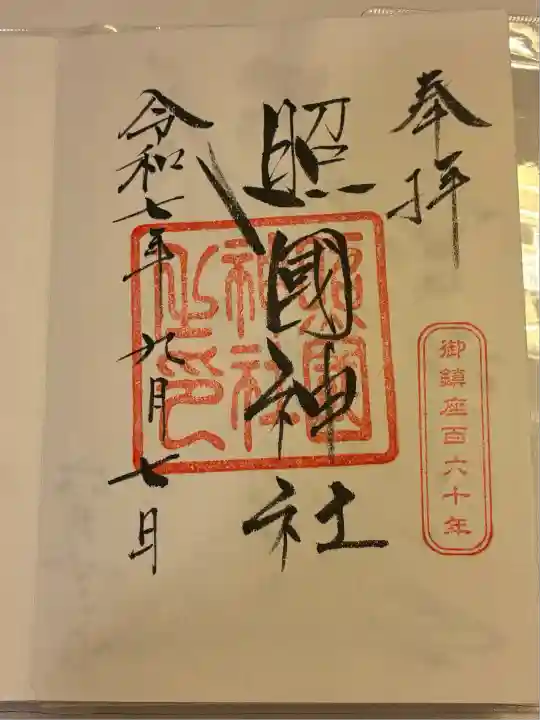 奉拝
御鎮座百六十年
照國神社
照國
神社
之印
令和七年九月七日